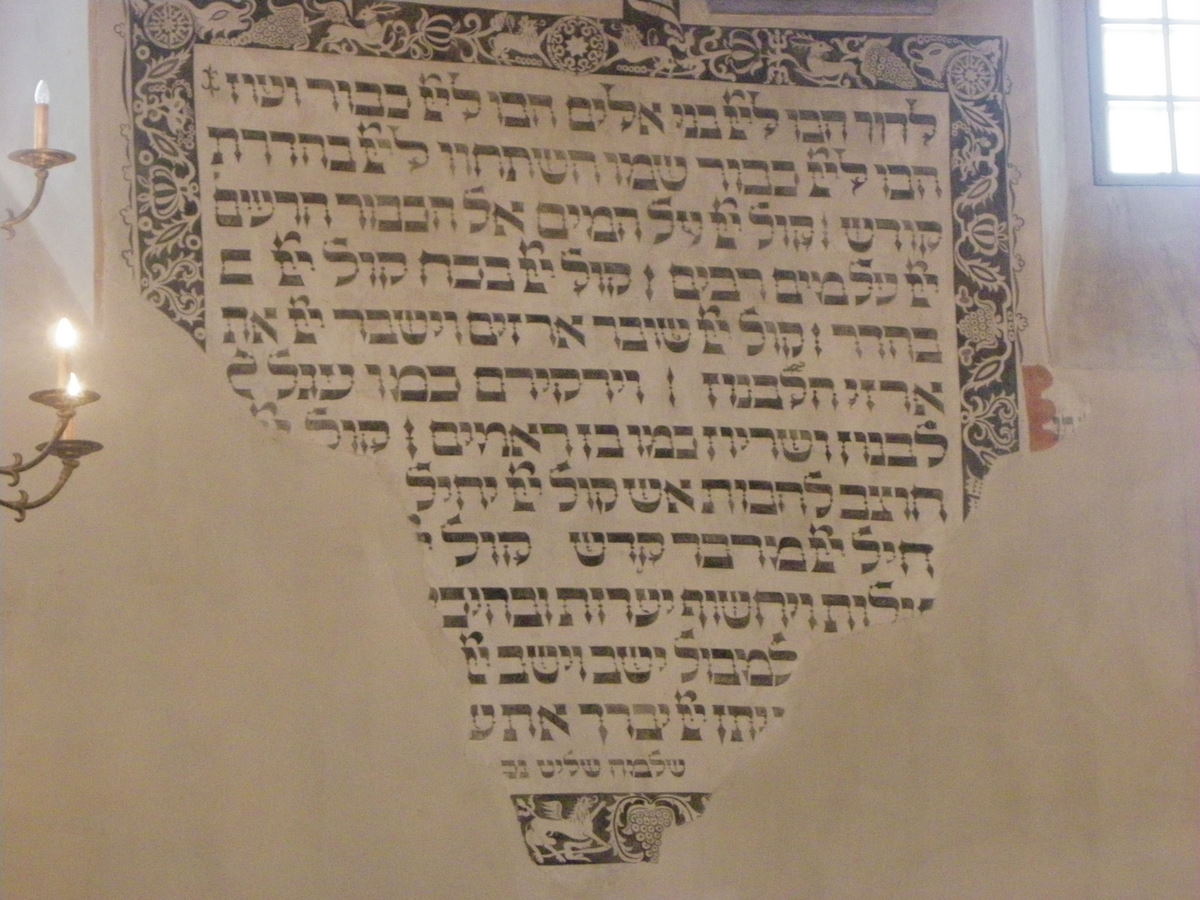 לדוד הבו ליי בני אלים הבו ליי כבוד ועוז
הבו ליי כבוד שמו השתחוו ליי בהדרת
קודש ׃ קול יי על המים אל הכבוד הרעים
יי על מים רבים ׃ קול יי בכח קול יי ב
בהדר ׃ קול יי שובר ארזים וישבר יי את
ארזי הלבנון ׃ וירקידם כמו עגל ל
לבנון ושריון כמו בן ראמים ׃ קול יי
חוצב להבות אש קול יי יחיל
חיל יי מידבר קדש קול י
אילות ויחשוף יערות ובהיכ
למבול ישב וישב יי
יתן יי יברך את ע
שלמה שליט